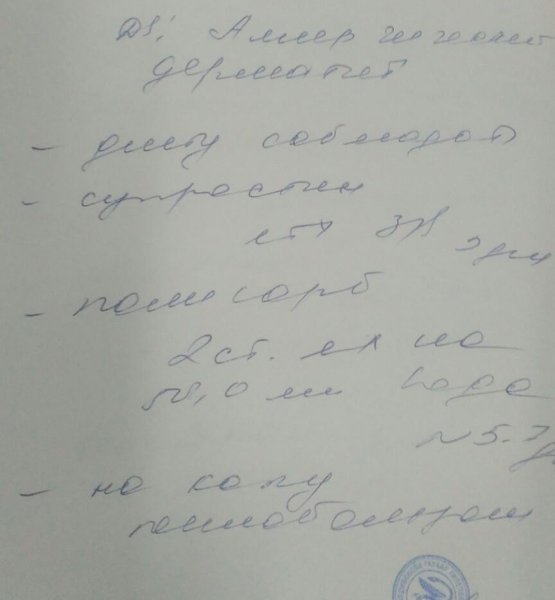 DS: Аллергический
дерматит
- диету соблюдать
- супрастин
1т х 3р 3 дн
- полисорб
2 ст. л на
50,0 мл вода
N 5-7
- на кожу